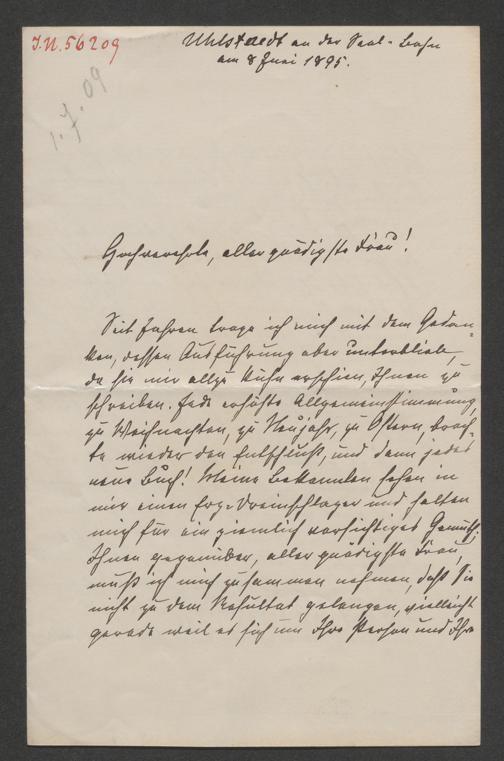 I.N. 56209
Uhlstaedt an der Saal-Bahn
am 8 Juni 1895.
1.7.09
Hochverehrte, allergnädigste Frau!
Seit Jahren trage ich mich mit dem Gedan-
ken, dessen Ausführung aber unterblieb,
da sie mir allzu kühn erschien, Ihnen zu
schreiben. Jede erhöhte Allgemeinstimmung,
zu Weihnachten, zu Neujahr, zu Ostern, brach-
te wieder den Entschluß, und dann jedes
neue Buch! Meine Bekannten sehen in
mir einen und halten
mich für ein ziemlich Gemüth;
Ihnen gegenüber, allergnädigste Frau,
muß ich mich zusammen nehmen, daß Sie
nicht zu dem Resultat gelangen, vielleicht
gerade weil es sich um Ihre Person und Ihre